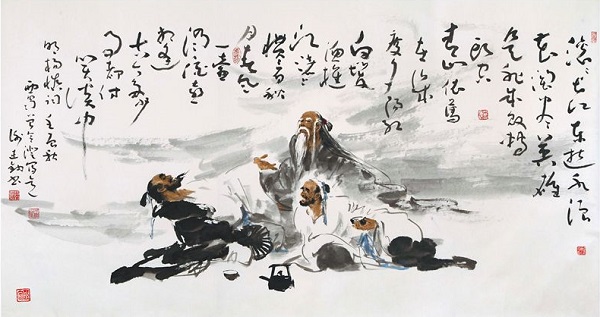 滚滚长江东逝水浪
花淘尽英雄
是非成败转
头空
青山依旧
度夕阳红
白发
渔樵
江渚上
惯看秋
月春风
一壶
浊酒喜
相逢
古今多少
事都付
笑谈中
明杨慎词